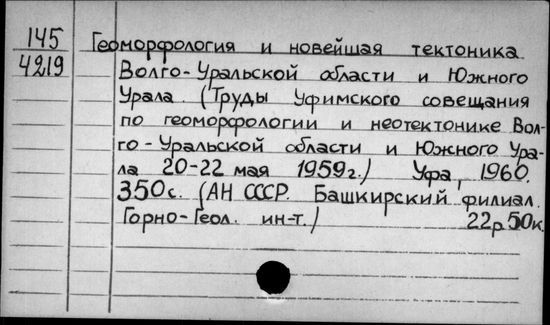 145
4219
Геоморфология и новейшая тектоника
Волго-Уральской области и Южного
Урала. (Труды Уфимского совещания
по геоморфологии и неотектонике Вол-
го-Уральской области и Южного Ура-
ла 20-22 мая 1959г.) Уфа, 1960.
350с. (АН СССР. Башкирский филиал.
Горно-Геол. ин-т.) 22р.50к.